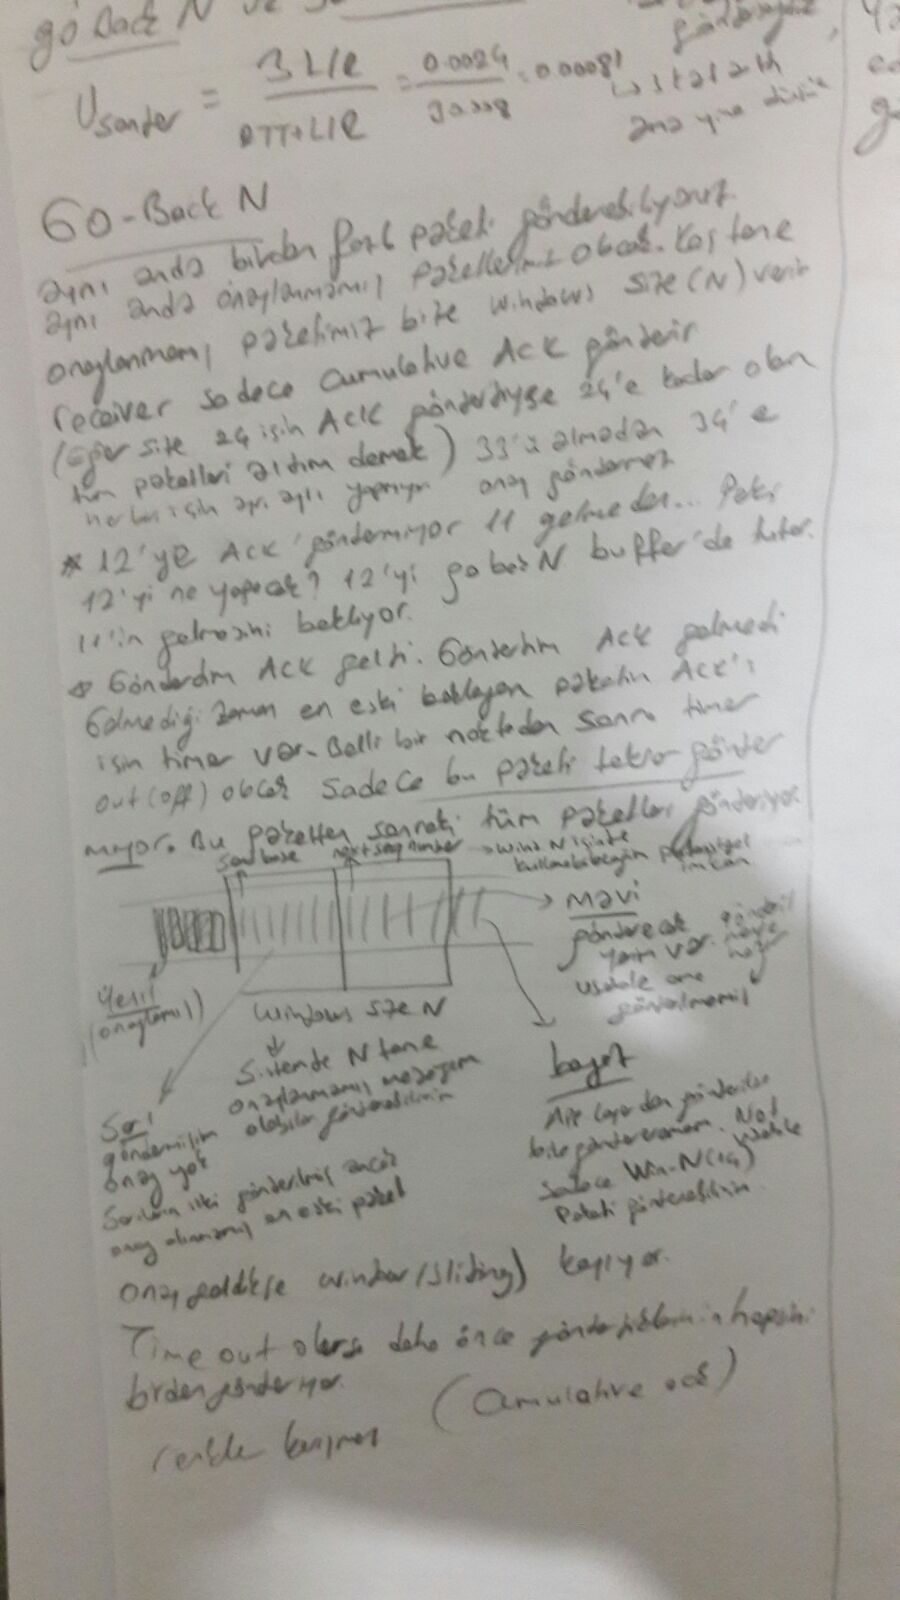 go Back N ve
U sender = 3 L/R / RTT + L/R = 0.0024 / 30.008 = 0.00081
↳ 3 kat arttı
ama yine düşük
Go-Back N
aynı anda birden fazla paketi gönderebiliyoruz.
aynı anda onaylanmamış paketlerimiz olacak. Kaç tane
onaylanmamış paketimiz bize windows size (N) verir
receiver sadece cumulative ACK gönderir
(Eğer size 24 için ACK gönderdiyse 24'e kadar olan
tüm paketleri aldım demek) 33'ü almadan 34'e
her biri için ayrı ayrı yapmıyor onay göndermez
* 12'ye ACK göndermiyor 11 gelmeden... Peki
12'yi ne yapacak? 12'yi go back N buffer'de tutar.
11'in gelmesini bekliyor.
Gönderdim ACK geldi. Gönderdim ACK gelmedi
Gelmediği zaman en eski bekleyen paketin ACK'i
için timer var. Belli bir noktadan sonra timer
out (off) olacak sadece bu paketi tekrar gönder
miyor. Bu paketten sonraki tüm paketleri gönderiyor
send base next seq number → Wind N içinde
kullanabileceğim potansiyel
imkan
mavi
gönderecek
yerim var.
usable ama
gönderilmemiş
Yeşil
(onaylanmış)
Windows size N
Sistemde N tane
onaylanmamış mesajım
olabilir gönderebilirim
beyaz
App layerdan gönderilse
bile gönderemem. Not
usable
Sadece Win-N(14)
Paketi gönderebilirim
Sarı
göndermişim
onay yok
Sarıların ilki gönderilmiş ancak
onay alınmamış en eski paket
Onay geldikçe window (sliding) kayıyor.
Time out olursa daha önce gönderdiklerimin hepsini
birden gönderiyor.
(Cumulative ack)